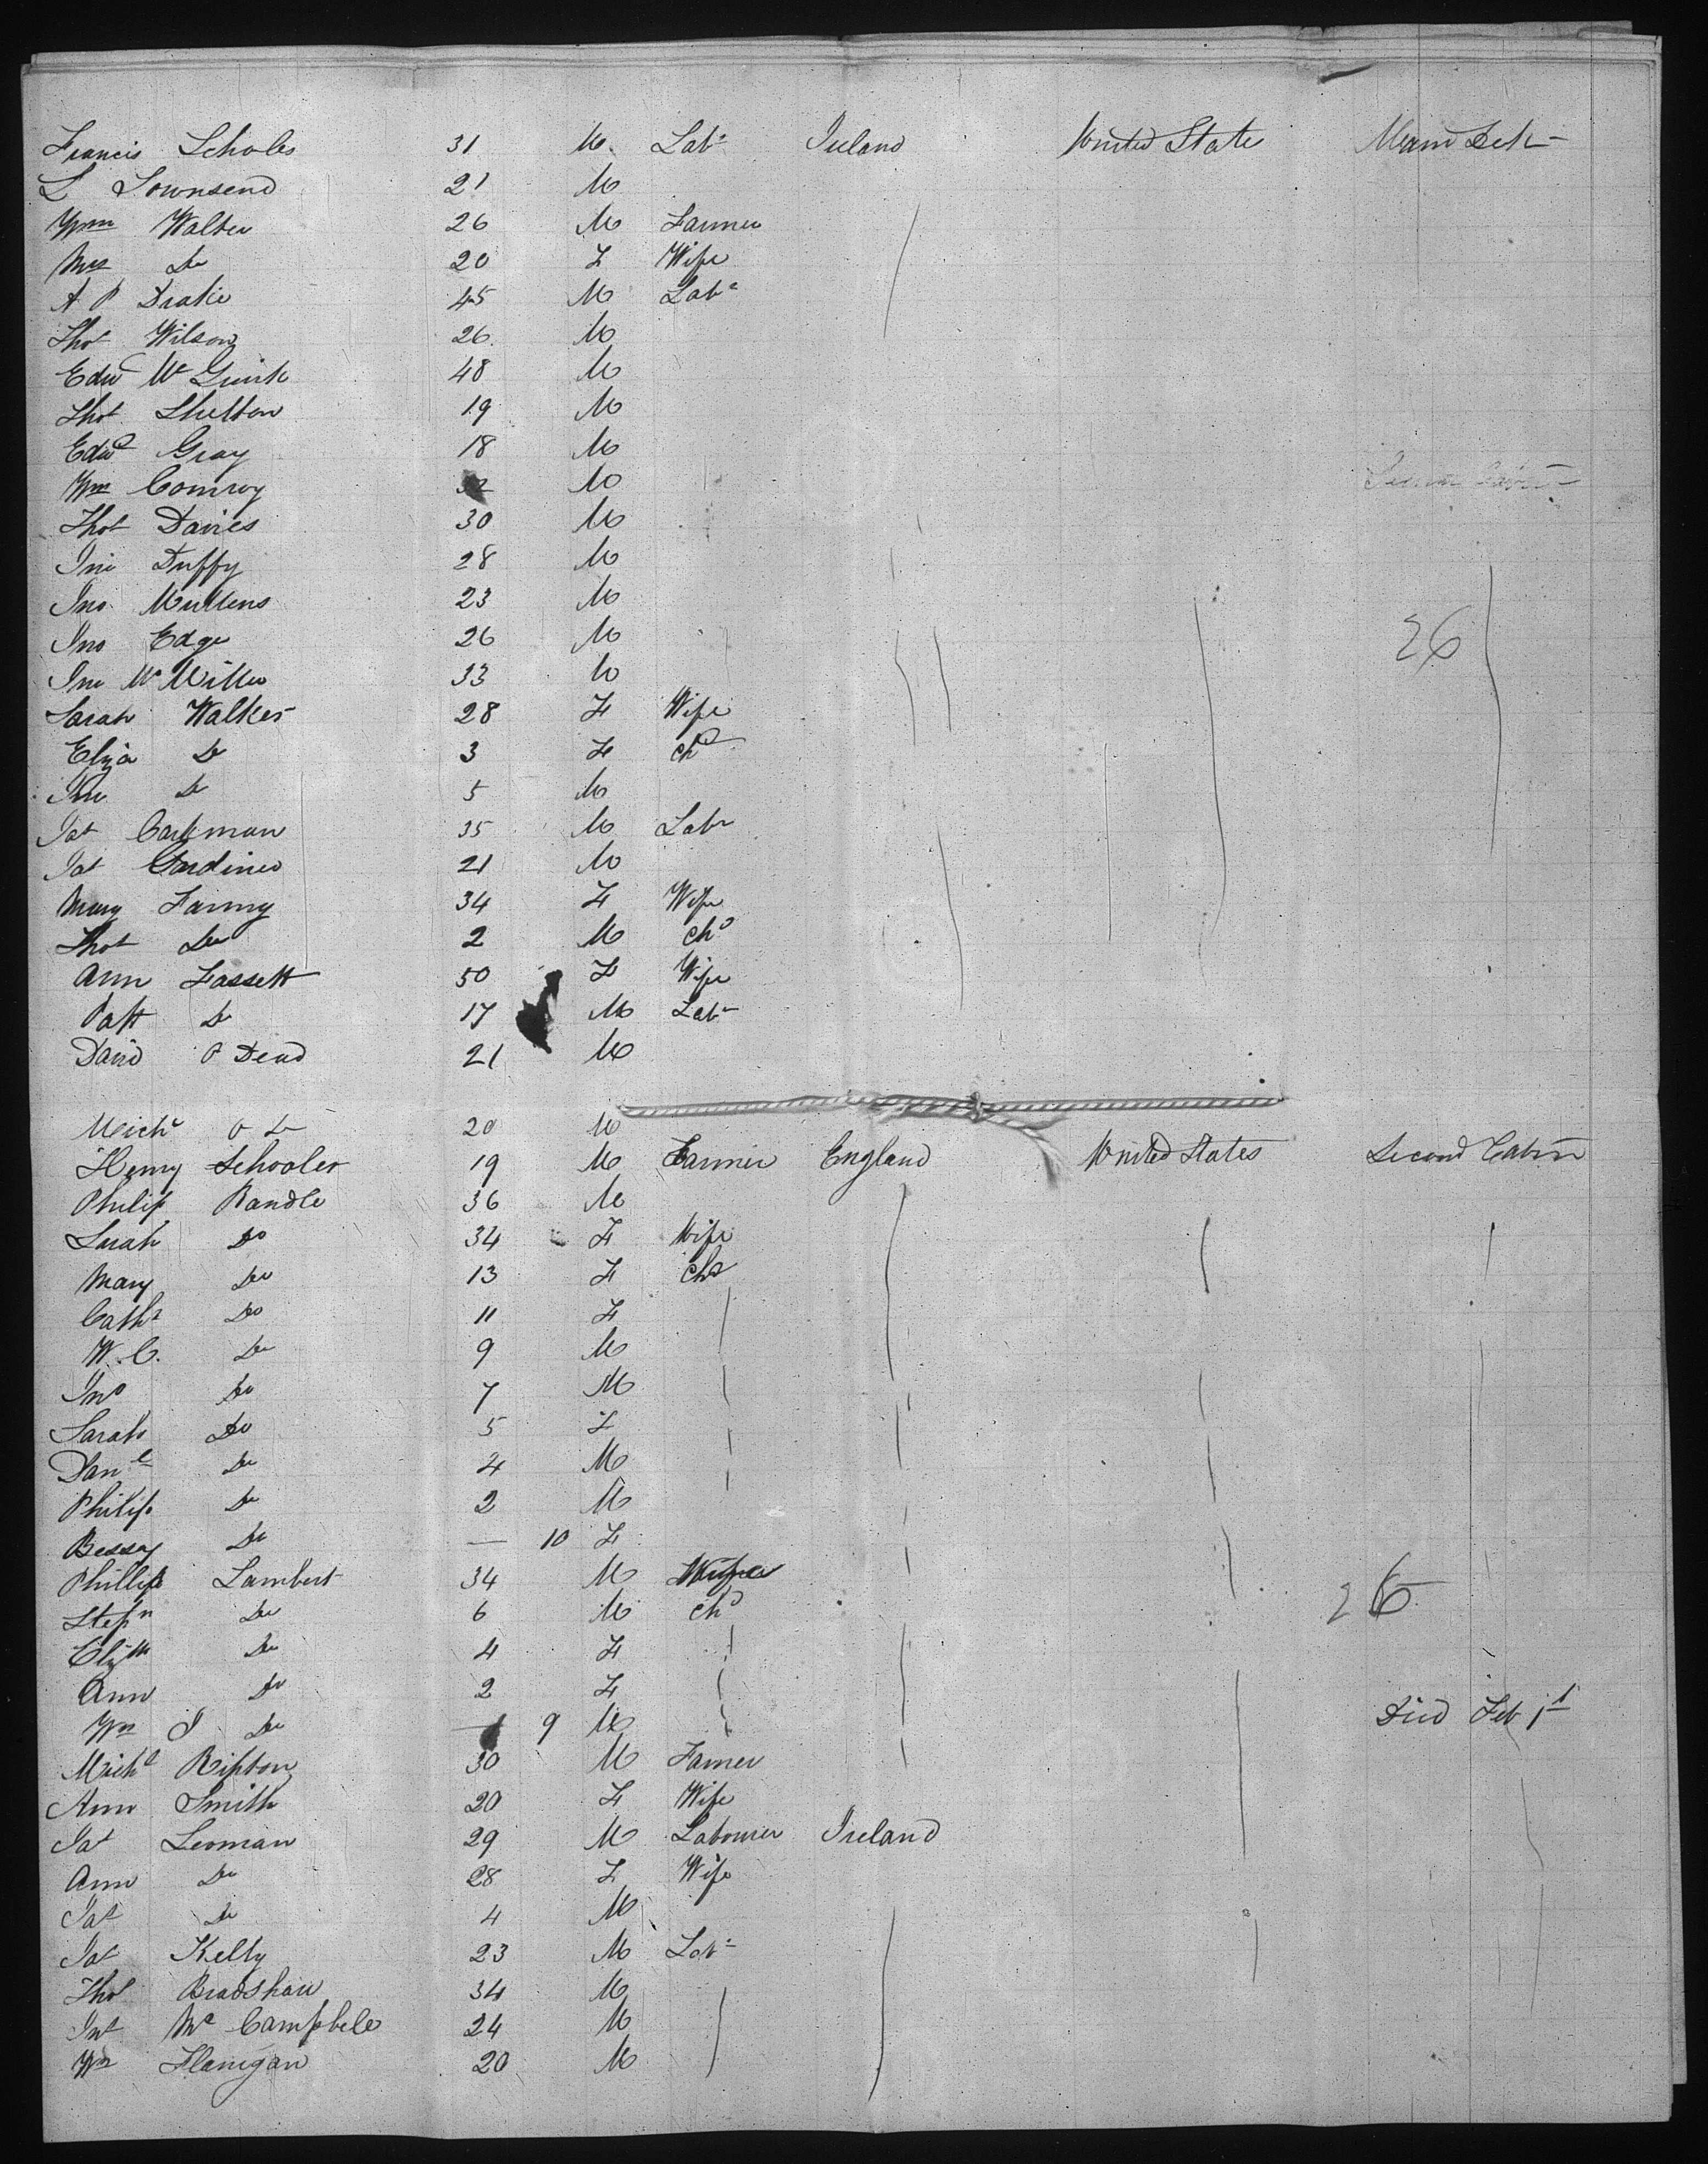 Francis Scholes 31 M. Labr Ireland United State Main Deck
L Townsend 21 M
Wm Walter 26 M Farmer
Mrs Do 20 F Wife
A P Drake 45 M Labr
Thos Wilson 26. M
Edwd Mc 48 M
Thos Shelton 19 M
Edwd Gray 18 M
Wm Comroy M
Thos Davies 30 M
Jno Duffy 28 M
Jno. Mullens 23 M
Jno Edge 26 M 26
Jno Mc Miller 33 M
Sarah Walker 28 F Wife
Eliza Do 3 F Chd
Jno Do 5 M
Jas Carkman 35 M Labr
Jas Gardiner 21 M
Mary Fanny 34 F Wife
Thos Do 2 M Chd
Ann Fassett 50 F Wife
Patt Do 17 M Labr
David O Dead 21 M
Michl O Do 20 M
Henry Schooler 19 M Farmer England United States Second Cabin
Philip Randle 36 M
Sarah Do 34 F Wife
Mary Do 13 F Chd
Cathe Do 11 F
W. C. Do 9 M
Jno Do 7 M
Sarah Do 5 F
Danl Do 4 M
Philip Do 2 M
Bessy Do — 10 F
Phillip Lambert 34 M
Stepn Do 6 M Chd 26
Elizth Do 4 F
Ann Do 2 F
Wm J Do — 9 M Died Feb 1st
Michl Ripton 30 M Farmer
Ann Smith 20 F Wife
Jas Leoman 29 M Labourer Ireland
Ann Do 28 F Wife
Jas Do 4 M
Jas Kelly 23 M Labr
Thos Bradshaw 34 M
Mc Campbele 24 M
Wm Flanigan 20 M